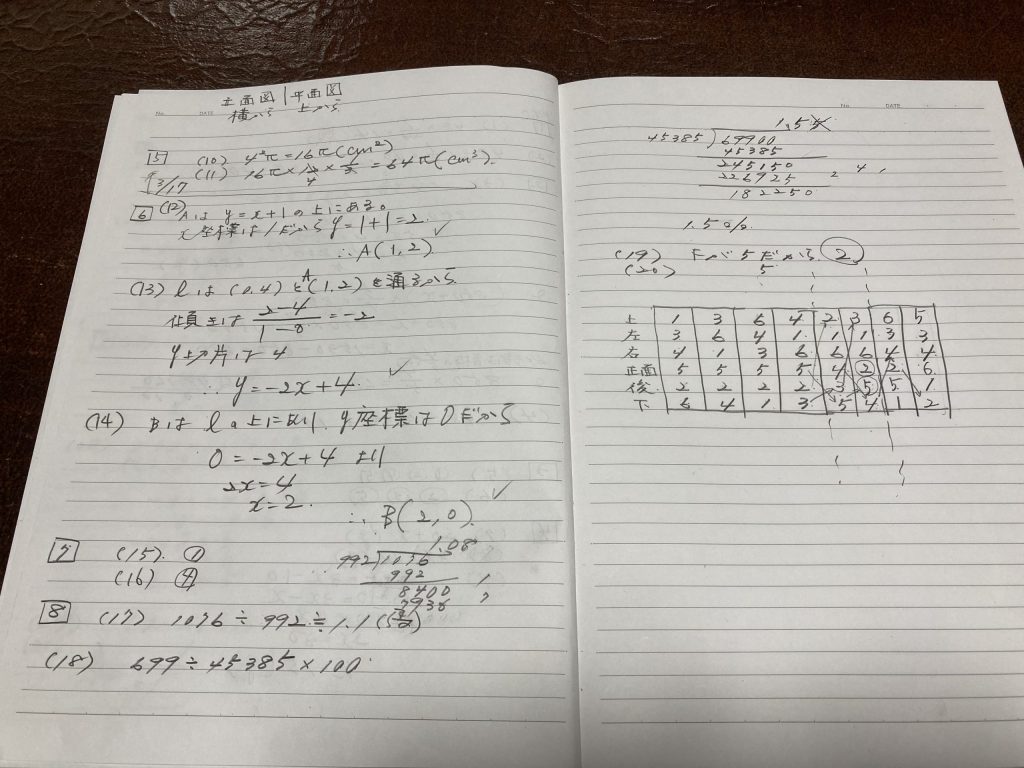 立面図|平面図
横から 上から
No. DATE
5 (10) 4²π=16π(cm²)
(11) 16π×12×1/3=64π(cm³).
4
3/17
6 (12) Aは y=x+1の上にある。
x座標は1だから y=1+1=2.
∴A(1,2)
(13) lは(0,4)とA(1,2)を通るから
傾きは (2-4)/(1-0) =-2
y切片は 4
∴ y=-2x+4
(14) Bは l の上にあり、y座標は0だから
0=-2x+4 より
2x=4
x=2.
∴ B(2,0)
7 (15). ①
(16) ④
1.08
992)1076
992
8400
7936
8 (17) 1076÷992≒1.1
(18) 699÷45385×100
No. DATE
1.54
45385)69900
45385
245150
226925
182250
1.5%
(19) 下が5だから ②
(20) 5
上 1 3 6 4 2 3 6 5
左 3 6 4 1 1 1 3 3
右 4 1 3 6 6 6 4 4
正面 5 5 5 5 4 2 2 6
後 2 2 2 2 3 5 5 1
下 6 4 1 3 5 4 1 2